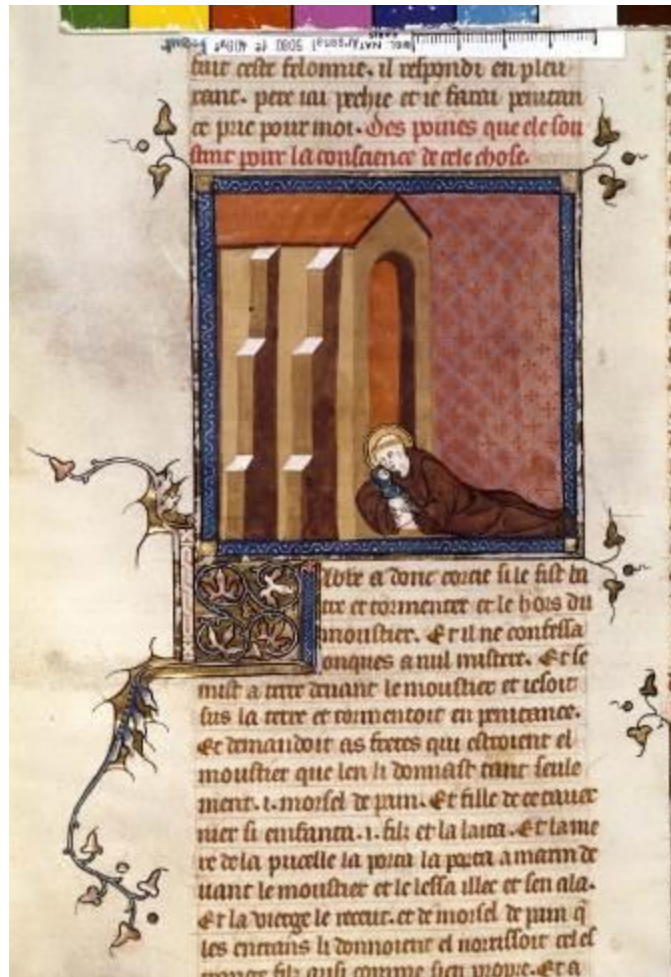 fait ceste felonnie. il respondi en pleu
rant. pere iai pechie et ie farai penitan
ce prie pour moi. Des poines que ele sou
stint pour la conscience de cele chose.
abbe a donc corcie si le fist ba
tre et tormenter et le hors du
moustier. Et il ne confessa
onques a nul mistere. Et se
mist a terre deuant le moustier et iesoit
sus la terre et tormentoit en penitance.
Et demandoit as freres qui estroient el
moustier que len li donnast tant seule
ment .i. morsel de pain. Et fille de ce tauer
nier si enfanta .i. filz et la laita. Et la me
re de la pucelle la porta la porta a matin de
uant le moustier et le lessa illec et sen ala.
Et la vierge le receut. et de morsel de pain q
les entrans li donnoient el norrissoit cel es
filz ausi comme sien propre. Et a